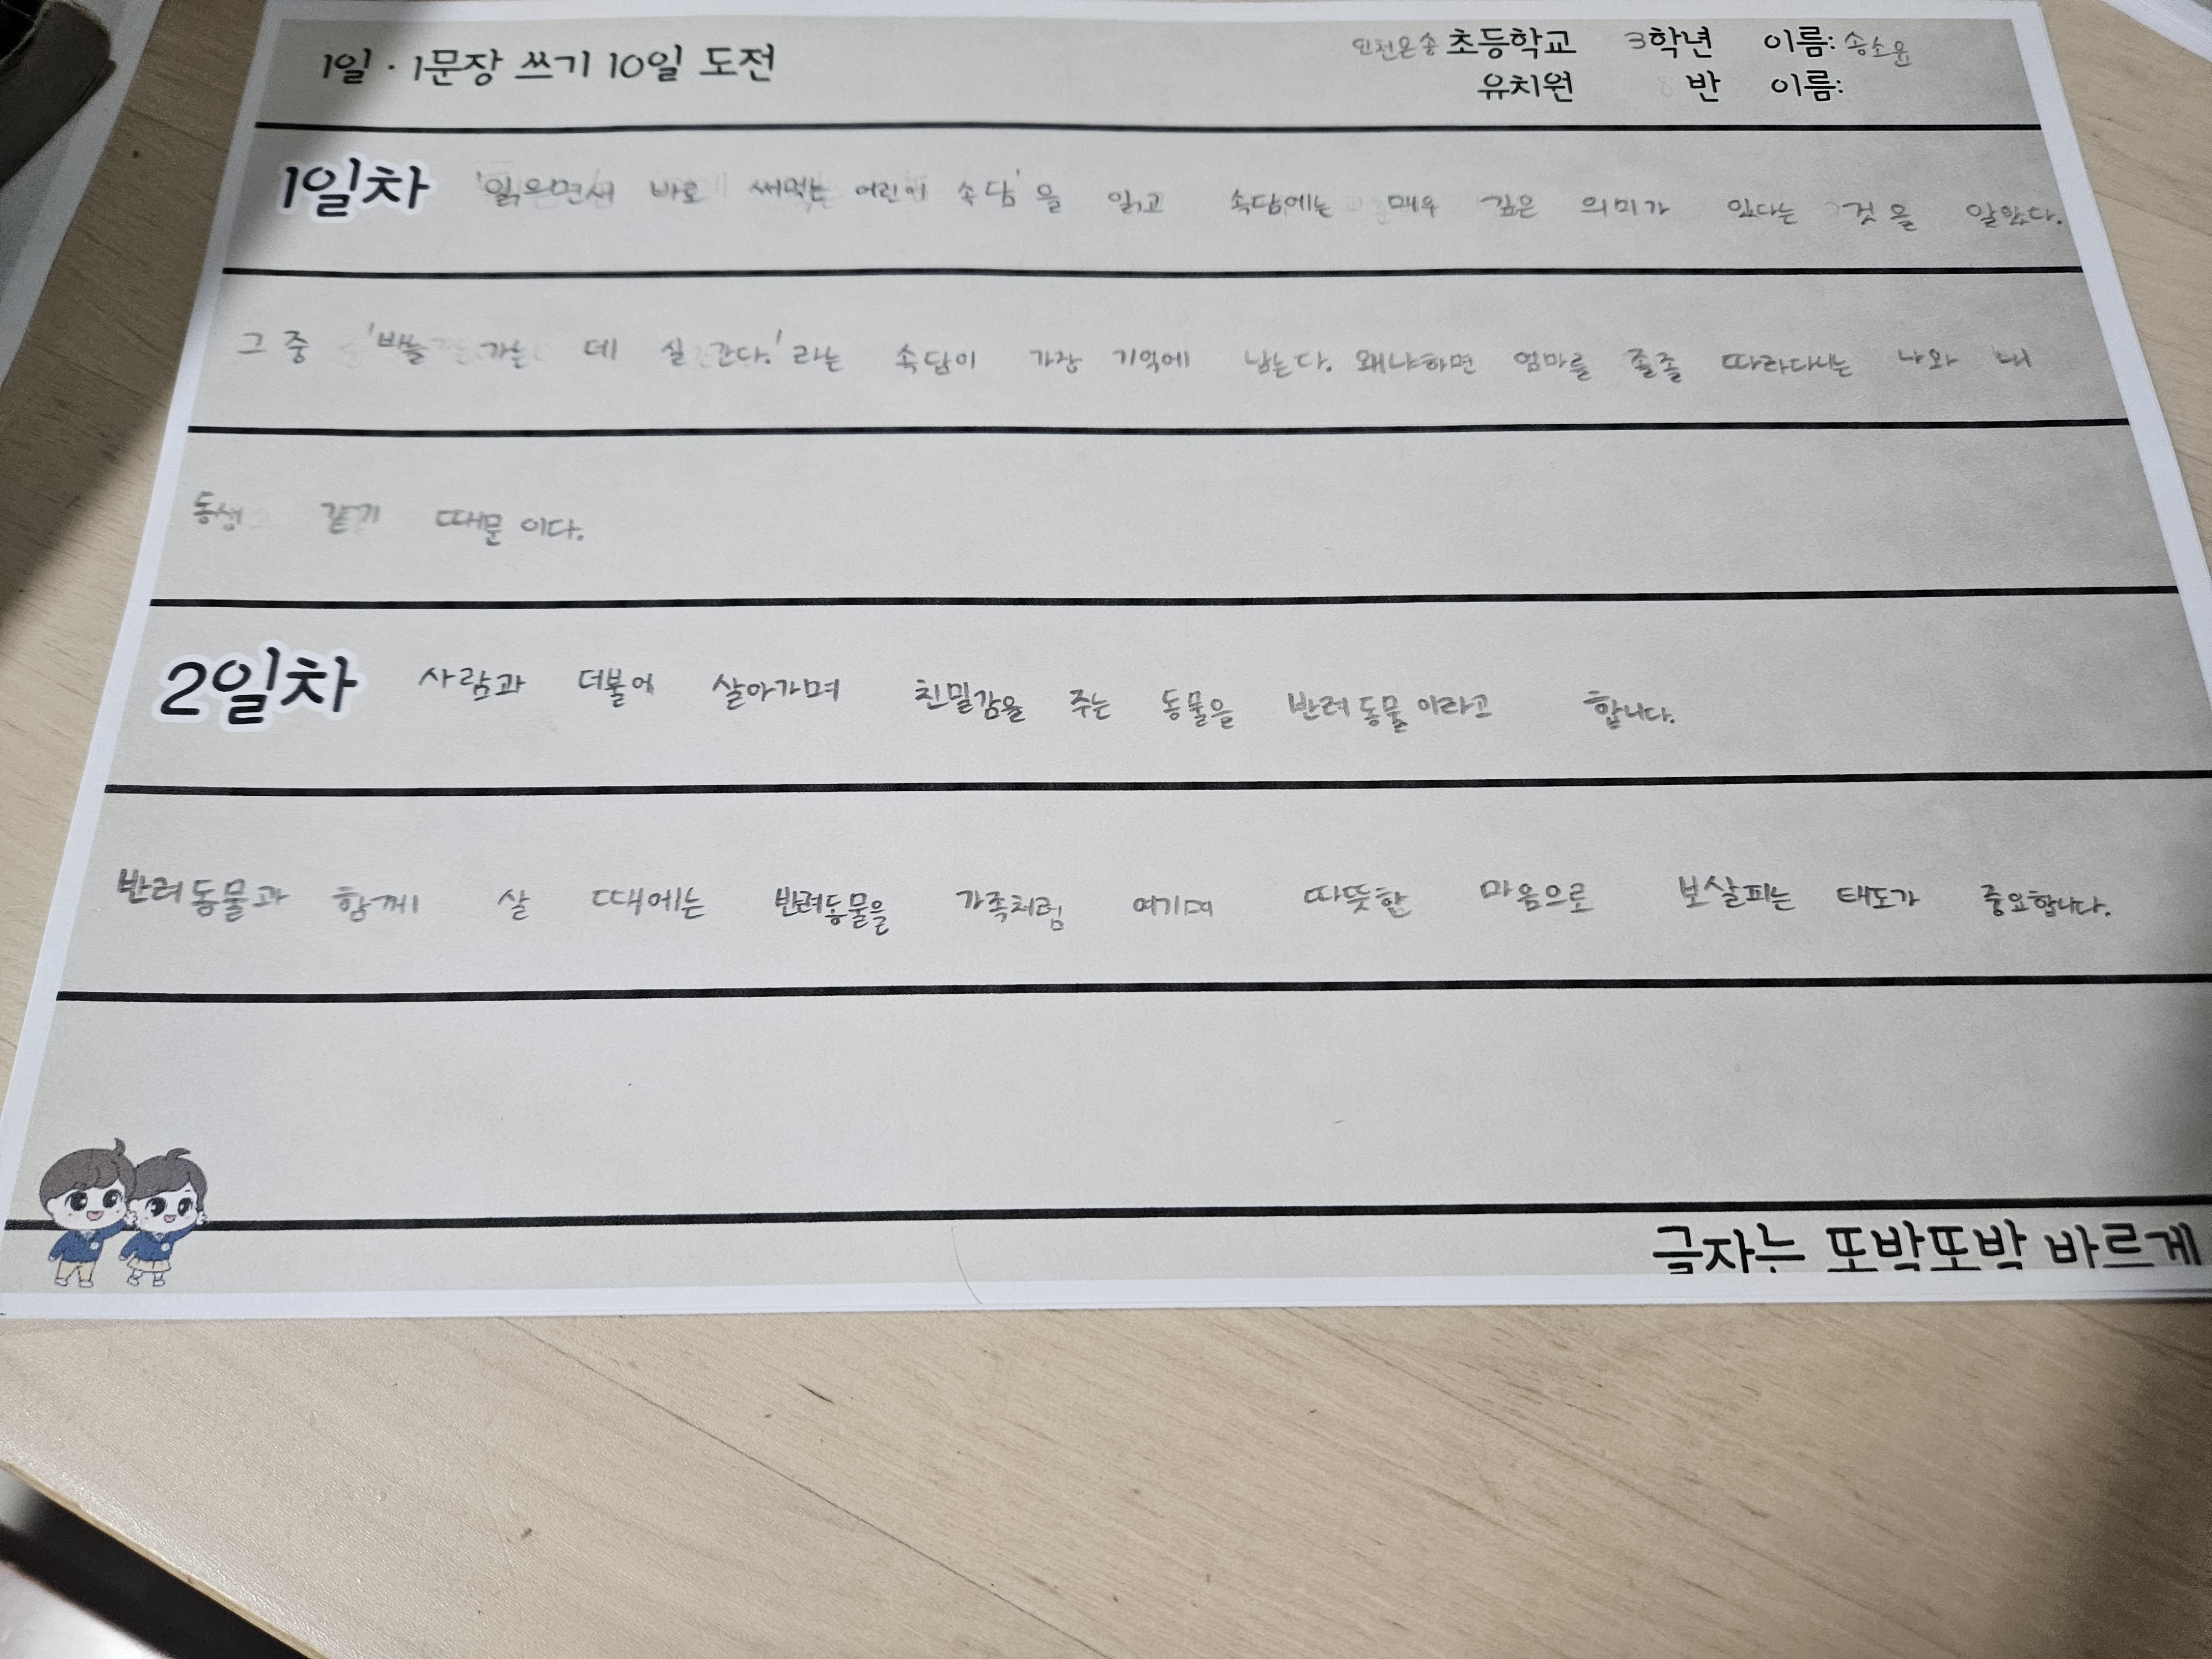 1일 · 1문장 쓰기 10일 도전
인천은송 초등학교 3학년 이름: 송소윤
유치원 반 이름:
1일차 '읽으면서 바로 써먹는 어린이 속담'을 읽고 속담에는 매우 깊은 의미가 있다는 것을 알았다.
그 중 '바늘 가는 데 실 간다.'라는 속담이 가장 기억에 남는다. 왜냐하면 엄마를 졸졸 따라다니는 나와 내
동생 같기 때문이다.
2일차 사람과 더불어 살아가며 친밀감을 주는 동물을 반려동물이라고 합니다.
반려동물과 함께 살 때에는 반려동물을 가족처럼 여기며 따뜻한 마음으로 보살피는 태도가 중요합니다.
글자는 또박또박 바르게